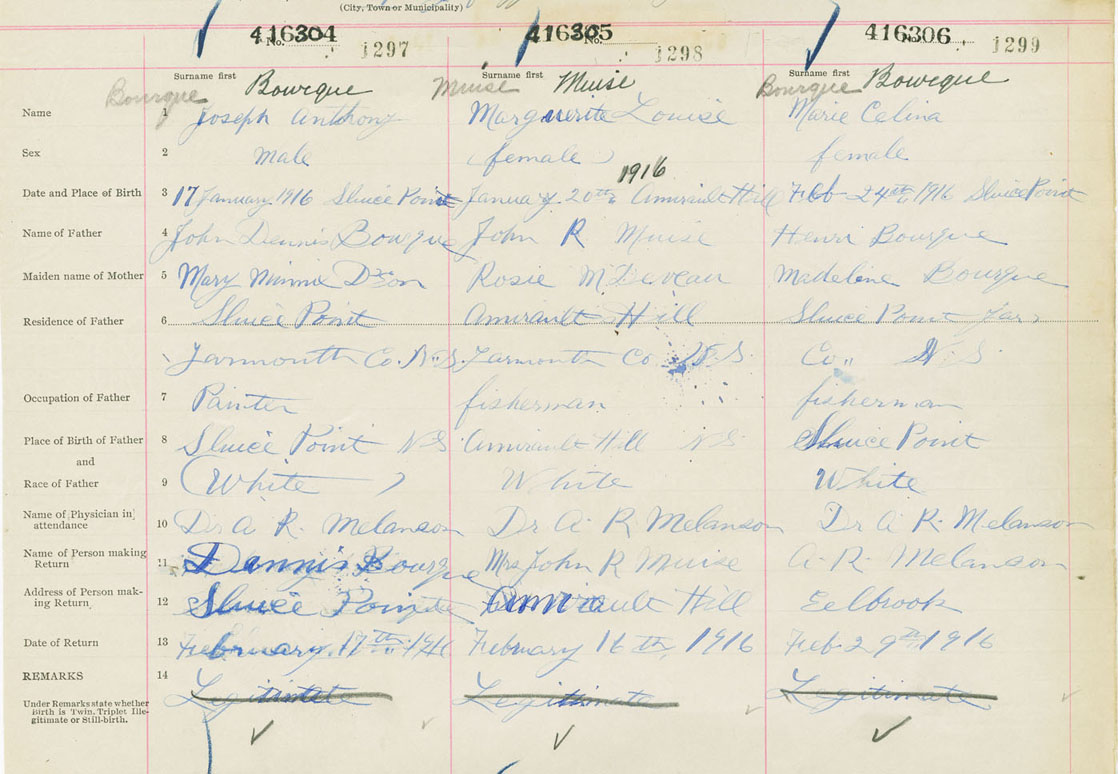 (City, Town or Municipality)
416304 416305 416306
No. 1297 No. 1298 No. 1299
Surname first Surname first Surname first
Bourque Bowrque Muise Muise Bourque Bowrque
Name 1 Joseph Anthony Marguerite Louise Marie Celina
Sex 2 Male (female) female
1916
Date and Place of Birth 3 17 January 1916 Sluice Point January 20th Amirault Hill Feb 24th 1916 Sluice Point
Name of Father 4 John Dennis Bourque John R Muise Henri Bourque
Maiden name of Mother 5 Mary Minnie Rosie M Deveau Madeline Bourque
Residence of Father 6 Sluice Point Amirault Hill Sluice Point Yar
Yarmouth Co. N.S. Yarmouth Co N.S. Co. N S.
Occupation of Father 7 Painter fisherman fisherman
Place of Birth of Father 8 Sluice Point NS Amirault Hill NS Sluice Point
and
Race of Father 9 (White) White White
Name of Physician in attendance 10 Dr A. R. Melanson Dr A. R Melanson Dr A R. Melanson
Name of Person making Return 11 Dennis Bourque Mrs John R Muise A. R. Melanson
Address of Person making Return 12 Sluice Point Amirault Hill Eelbrook
Date of Return 13 February 17th 1916 February 16th, 1916 Feb 29th 1916
REMARKS 14 Legitimate Legitimate Legitimate
Under Remarks state whether
Birth is Twin, Triplet Ille-
gitimate or Still-birth.